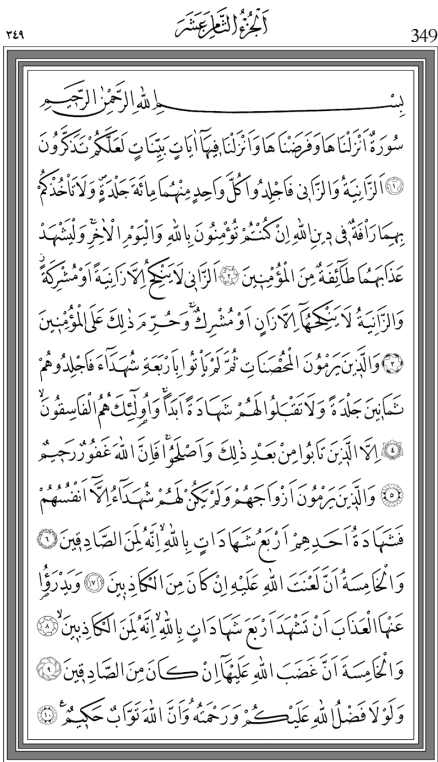 ٣٤٩ اَلْجُزْءُ الثَّامِنَ عَشَرَ 349
بِسْــــــــــــــمِ اللهِ الرَّحْمٰنِ الرَّحِيمِ
سُورَةٌ اَنْزَلْنَاهَا وَفَرَضْنَاهَا وَاَنْزَلْنَا فِيهَٓا اٰيَاتٍ بَيِّنَاتٍ لَعَلَّكُمْ تَذَكَّرُونَ
﴿١﴾ اَلزَّانِيَةُ وَالزَّانِى فَاجْلِدُوا كُلَّ وَاحِدٍ مِنْهُمَا مِائَةَ جَلْدَةٍ وَلَا تَأْخُذْكُمْ
بِهِمَا رَاْفَةٌ فِى دِينِ اللهِ اِنْ كُنْتُمْ تُؤْمِنُونَ بِاللهِ وَالْيَوْمِ الْاٰخِرِۚ وَلْيَشْهَدْ
عَذَابَهُمَا طَٓائِفَةٌ مِنَ الْمُؤْمِنِينَ ﴿٢﴾ اَلزَّانِى لَا يَنْكِحُ اِلَّا زَانِيَةً اَوْ مُشْرِكَةًۘ
وَالزَّانِيَةُ لَا يَنْكِحُهَٓا اِلَّا زَانٍ اَوْ مُشْرِكٌۚ وَحُرِّمَ ذٰلِكَ عَلَى الْمُؤْمِنِينَ
﴿٣﴾ وَالَّذِينَ يَرْمُونَ الْمُحْصَنَاتِ ثُمَّ لَمْ يَأْتُوا بِاَرْبَعَةِ شُهَدَٓاءَ فَاجْلِدُوهُمْ
ثَمَانِينَ جَلْدَةً وَلَا تَقْبَلُوا لَهُمْ شَهَادَةً اَبَدًاۚ وَاُولٰٓئِكَ هُمُ الْفَاسِقُونَۙ
﴿٤﴾ اِلَّا الَّذِينَ تَابُوا مِنْ بَعْدِ ذٰلِكَ وَاَصْلَحُواۚ فَاِنَّ اللهَ غَفُورٌ رَحِيمٌ
﴿٥﴾ وَالَّذِينَ يَرْمُونَ اَزْوَاجَهُمْ وَلَمْ يَكُنْ لَهُمْ شُهَدَٓاءُ اِلَّٓا اَنْفُسُهُمْ
فَشَهَادَةُ اَحَدِهِمْ اَرْبَعُ شَهَادَاتٍ بِاللهِۙ اِنَّهُ لَمِنَ الصَّادِقِينَ ﴿٦﴾
وَالْخَامِسَةُ اَنَّ لَعْنَتَ اللهِ عَلَيْهِ اِنْ كَانَ مِنَ الْكَاذِبِينَ ﴿٧﴾ وَيَدْرَؤُا
عَنْهَا الْعَذَابَ اَنْ تَشْهَدَ اَرْبَعَ شَهَادَاتٍ بِاللهِۙ اِنَّهُ لَمِنَ الْكَاذِبِينَۙ ﴿٨﴾
وَالْخَامِسَةَ اَنَّ غَضَبَ اللهِ عَلَيْهَٓا اِنْ كَانَ مِنَ الصَّادِقِينَ ﴿٩﴾
وَلَوْلَا فَضْلُ اللهِ عَلَيْكُمْ وَرَحْمَتُهُ وَاَنَّ اللهَ تَوَّابٌ حَكِيمٌ ﴿١٠﴾